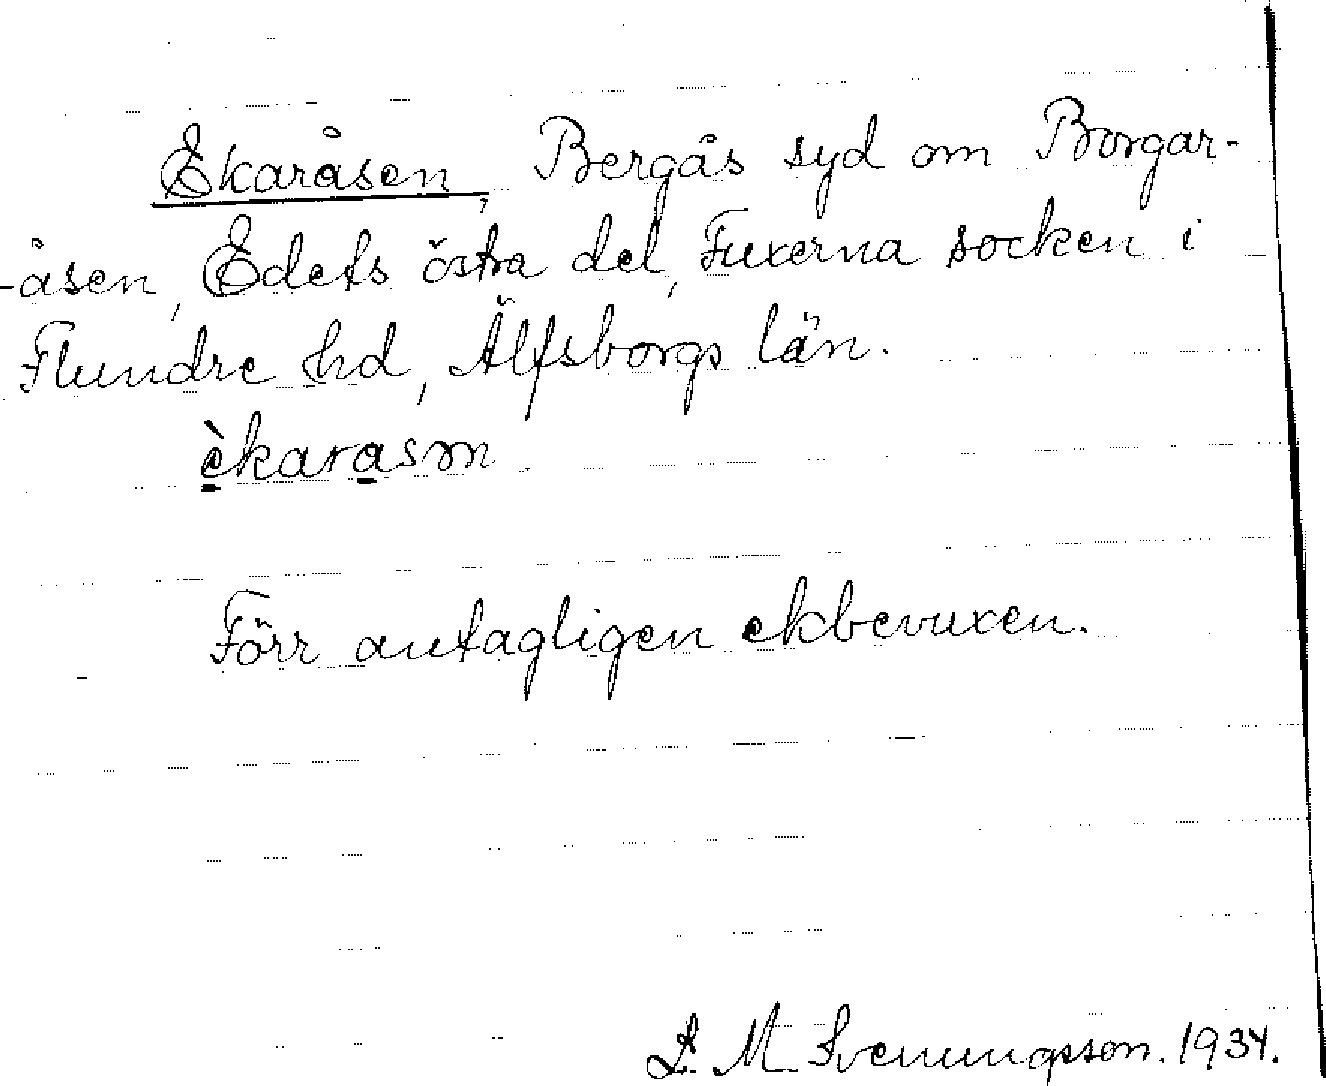 Ekaråsen, Bergås syd om Borgar-
-åsen, Edets östra del, Fuxerna socken i
Flundre hd, Älfsborgs län.
èkarasm
Förr antagligen ekbevuxen.
L. M. Svenungsson. 1934.